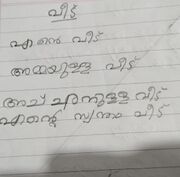 വീട്
എന്റെ വീട്
അമ്മയുള്ള വീട്
അച്ഛനുള്ള വീട്
എന്റെ സ്വന്തം വീട്